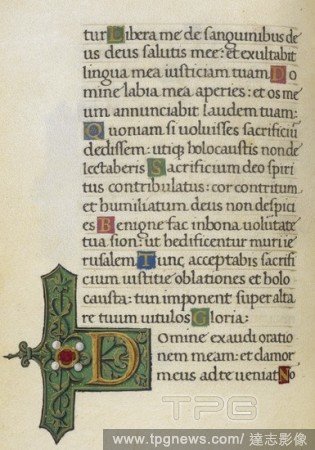 tur Libera me de sanguinibus de
us deus salutis mee: et exultabit
lingua mea iusticiam tuam. Do
mine labia mea aperies: et os me
um annunciabit laudem tuam:
Quoniam si voluisses sacrificiū
dedissem: utiqȝ holocaustis non de
lectaberis Sacrificium deo spiri
tus contribulatus: cor contritum
et humiliatum deus non despici
es Benigne fac in bona volūtate
tua sion: ut hedificentur muri ie
rusalem Tunc acceptabis sacrifi
cium iustitie oblationes et holo
causta: tun imponent super alta
re tuum uitulos Gloria:
Domine exaudi oratio
nem meam: et clamor
meus ad te veniat No
TPG
www.tpgnews.com / 達志影像